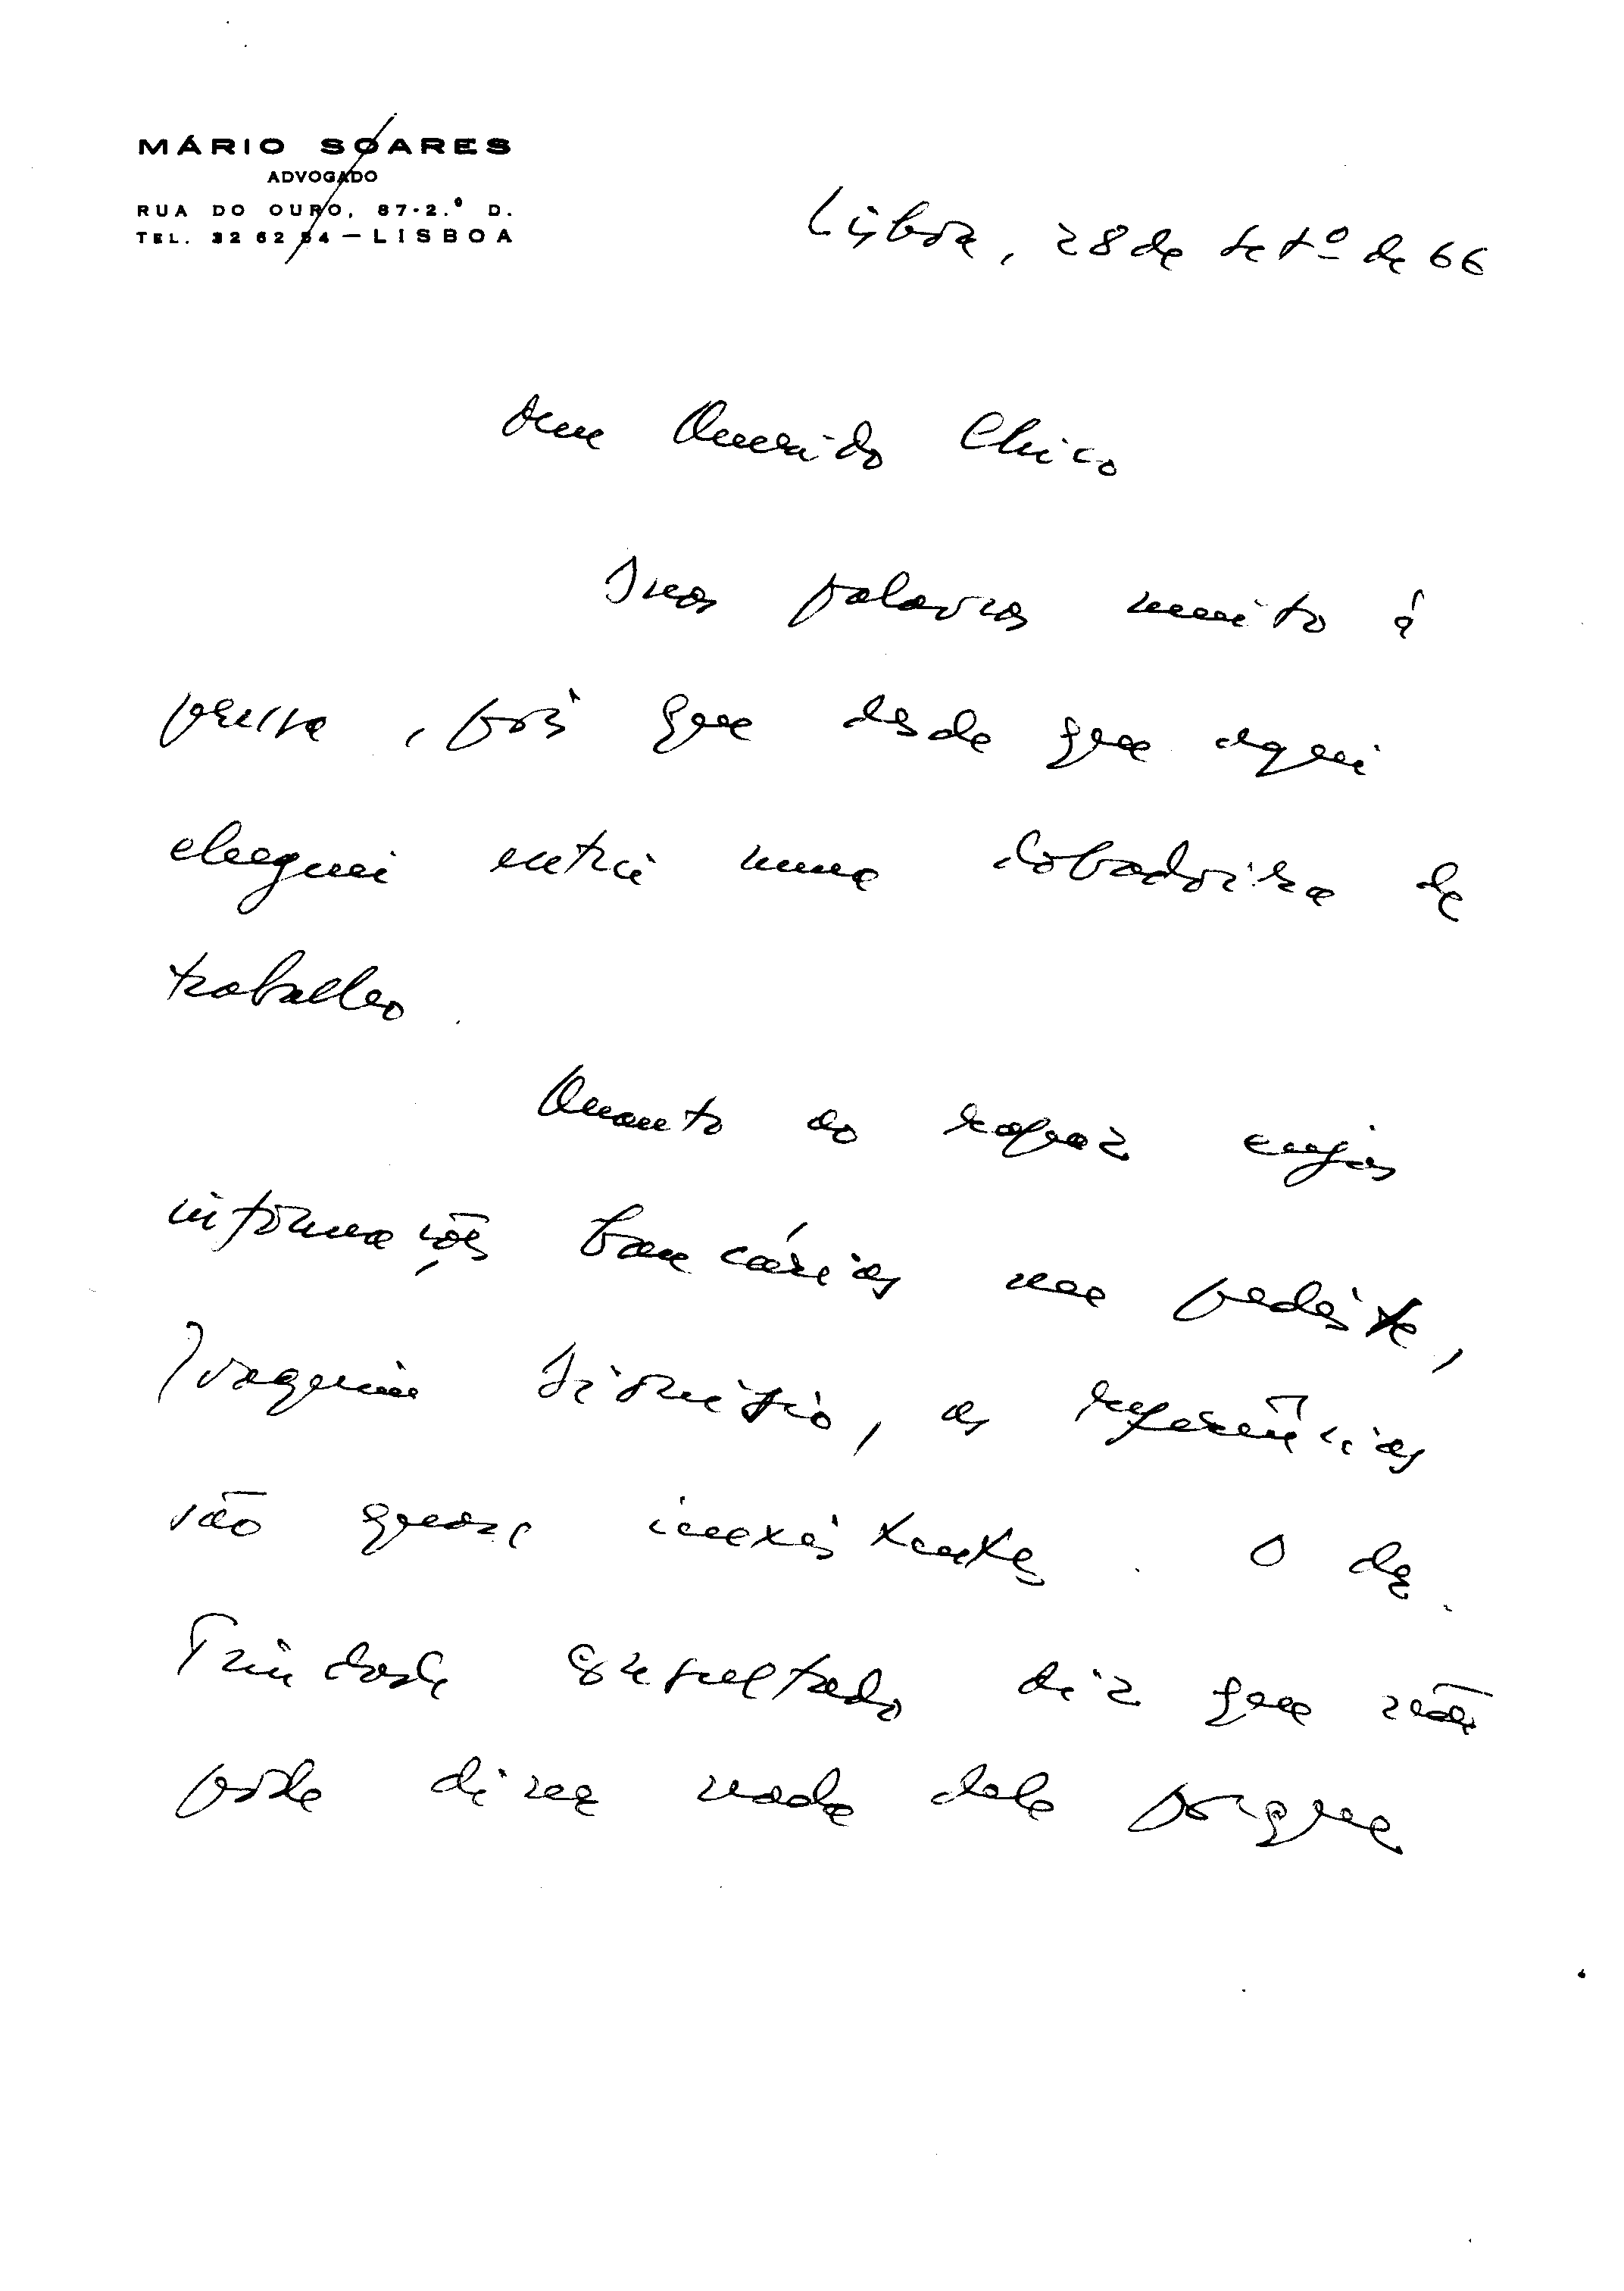 MÁRIO SOARES
ADVOGADO
RUA DO OURO, 87-2.º D.
TEL. 32 62 54 — LISBOA
Lisboa, 28 de setº de 66
Meu Querido Chico
Duas palavras muito à
pressa, pois que desde que aqui
cheguei entrei numa dobadoira de
trabalho.
Quanto ao rapaz cujas
informações bancárias me pediste,
Joaquim Dionísio, as referências
são quase inexistentes. O dr.
Trindade consultado diz que não
pode dizer nada dele porque